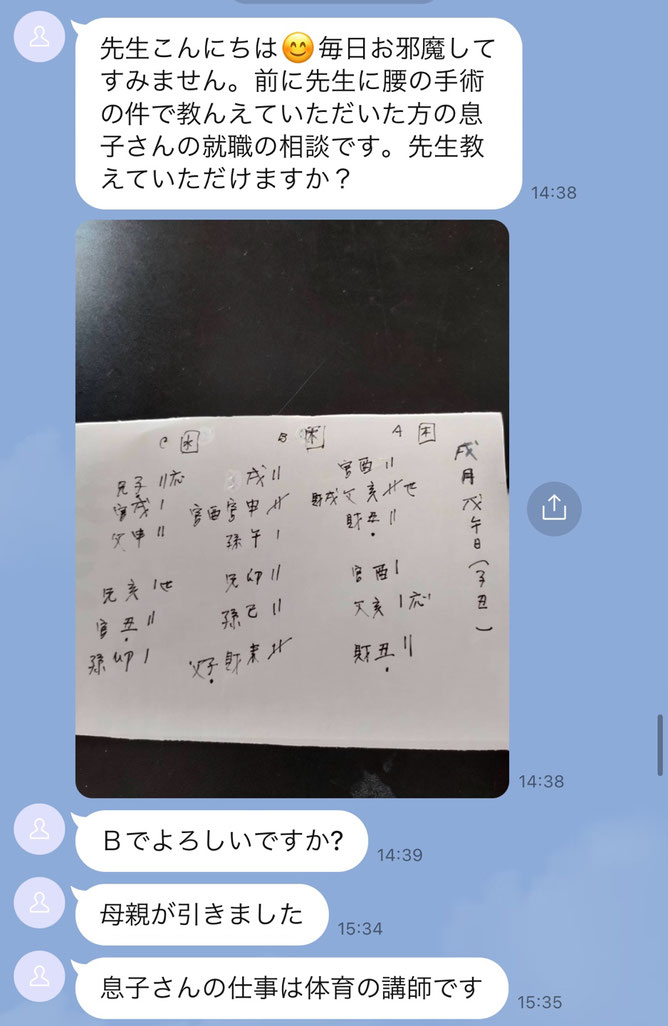 先生こんにちは😊毎日お邪魔して
すみません。前に先生に腰の手術
の件で教んえていただいた方の息
子さんの就職の相談です。先生教
えていただけますか？
14:38
戌月戊午日(子丑)
A 木
官酉 ||
財戌 父亥 || 世
財丑 ||
官酉 |
父亥 | 応
財丑 ||
B 木
戌 ||
官酉 官申 ||
孫午 |
兄卯 ||
孫巳 ||
父子 財未 ||
C 水
兄子 || 応
官戌 |
父申 ||
兄亥 | 世
官丑 ||
孫卯 |
14:38
Ｂでよろしいですか?
14:39
母親が引きました
15:34
息子さんの仕事は体育の講師です
15:35